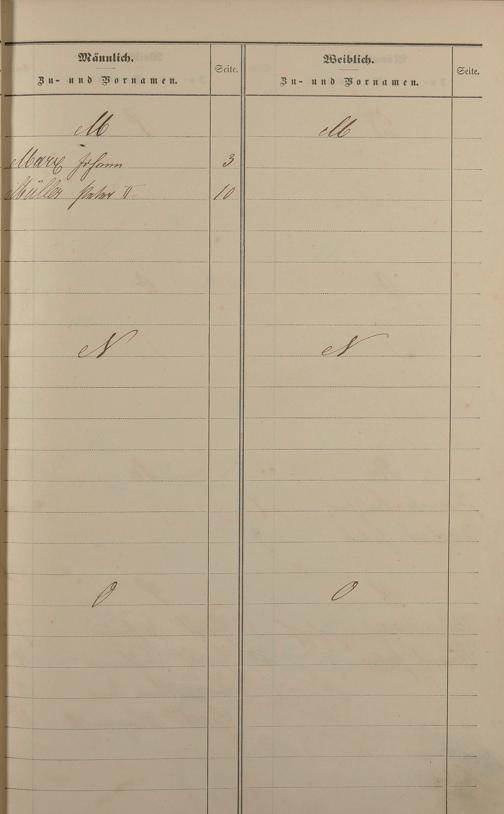 Männlich. Seite. Weiblich. Seite.
Zu- und Vornamen. Zu- und Vornamen.
M M
Marx Johann 3
Müller Peter II 10
N N
O O